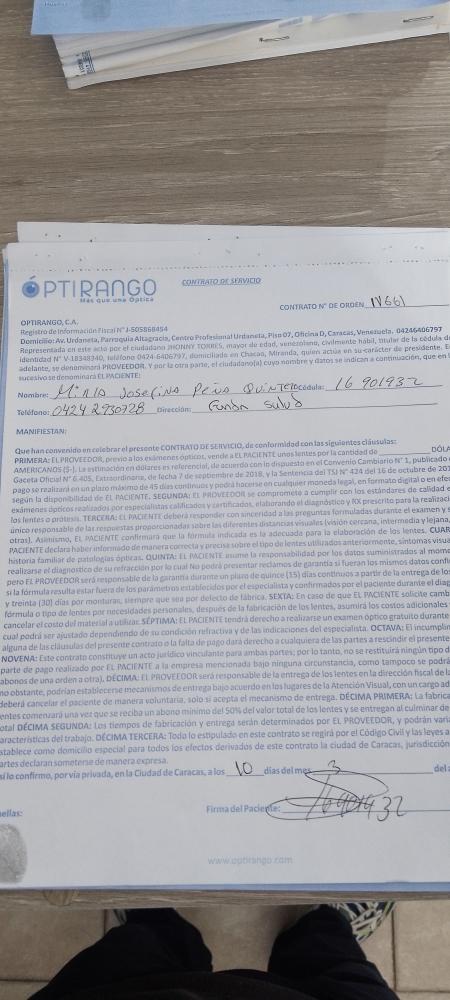 ÓPTIRANGO
Más que una Óptica
CONTRATO DE SERVICIO
CONTRATO N° DE ORDEN N661
OPTIRANGO, C.A.
Registro de Información Fiscal N° J-505868454
Domicilio: Av. Urdaneta, Parroquia Altagracia, Centro Profesional Urdaneta, Piso 07, Oficina D, Caracas, Venezuela. 04246406797
Representada en este acto por el ciudadano JHONNY TORRES, mayor de edad, venezolano, civilmente hábil, titular de la cédula de
identidad N° V-18348340, teléfono 0424-6406797, domiciliado en Chacao, Miranda, quien actúa en su carácter de presidente. E
adelante, se denominará PROVEEDOR. Y por la otra parte, el ciudadano(a) cuyo nombre y datos se indican a continuación, que en l
sucesivo se denominará EL PACIENTE:
Nombre: Mirla Josefina Peña Quintero Cédula: 16 901932
Teléfono: 0424 2930728 Dirección: Funda Salud
MANIFIESTAN:
Que han convenido en celebrar el presente CONTRATO DE SERVICIO, de conformidad con las siguientes cláusulas:
PRIMERA: EL PROVEEDOR, previo a los exámenes ópticos, vende a EL PACIENTE unos lentes por la cantidad de DÓLA
AMERICANOS ($-). La estimación en dólares es referencial, de acuerdo con lo dispuesto en el Convenio Cambiario N° 1, publicado
Gaceta Oficial N° 6.405, Extraordinaria, de fecha 7 de septiembre de 2018, y la Sentencia del TSJ N° 424 del 16 de octubre de 201
pago se realizará en un plazo máximo de 45 días continuos y podrá hacerse en cualquier moneda legal, en formato digital o en efe
según la disponibilidad de EL PACIENTE. SEGUNDA: EL PROVEEDOR se compromete a cumplir con los estándares de calidad e
exámenes ópticos realizados por especialistas calificados y certificados, elaborando el diagnóstico y RX prescrito para la realizaci
los lentes o prótesis. TERCERA: EL PACIENTE deberá responder con sinceridad a las preguntas formuladas durante el examen y
único responsable de las respuestas proporcionadas sobre las diferentes distancias visuales (visión cercana, intermedia y lejana,
otras). Asimismo, EL PACIENTE confirmará que la fórmula indicada es la adecuada para la elaboración de los lentes. CUAR
PACIENTE declara haber informado de manera correcta y precisa sobre el tipo de lentes utilizados anteriormente, síntomas visua
historia familiar de patologías ópticas. QUINTA: EL PACIENTE asume la responsabilidad por los datos suministrados al mome
realizarse el diagnostico de su refracción por lo cual No podrá presentar reclamos de garantía si fueran los mismos datos confi
pero EL PROVEEDOR será responsable de la garantía durante un plazo de quince (15) días continuos a partir de la entrega de lo
si la fórmula resulta estar fuera de los parámetros establecidos por el especialista y confirmados por el paciente durante el diag
y treinta (30) días por monturas, siempre que sea por defecto de fábrica. SEXTA: En caso de que EL PACIENTE solicite camb
fórmula o tipo de lentes por necesidades personales, después de la fabricación de los lentes, asumirá los costos adicionales
cancelar el costo del material a utilizar. SÉPTIMA: EL PACIENTE tendrá derecho a realizarse un examen óptico gratuito durante
cual podrá ser ajustado dependiendo de su condición refractiva y de las indicaciones del especialista. OCTAVA: El incumplim
alguna de las cláusulas del presente contrato o la falta de pago dará derecho a cualquiera de las partes a rescindir el presente
NOVENA: Este contrato constituye un acto jurídico vinculante para ambas partes; por lo tanto, no se restituirá ningún tipo d
parte de pago realizado por EL PACIENTE a la empresa mencionada bajo ninguna circunstancia, como tampoco se podrá
abonos de una orden a otra). DÉCIMA: EL PROVEEDOR será responsable de la entrega de los lentes en la dirección fiscal de l
no obstante, podrían establecerse mecanismos de entrega bajo acuerdo en los lugares de la Atención Visual, con un cargo ad
deberá cancelar el paciente de manera voluntaria, solo si acepta el mecanismo de entrega. DÉCIMA PRIMERA: La fabrica
entes comenzará una vez que se reciba un abono mínimo del 50% del valor total de los lentes y se entregan al culminar de
otal DÉCIMA SEGUNDA: Los tiempos de fabricación y entrega serán determinados por EL PROVEEDOR, y podrán varia
aracterísticas del trabajo. DÉCIMA TERCERA: Todo lo estipulado en este contrato se regirá por el Código Civil y las leyes a
stablece como domicilio especial para todos los efectos derivados de este contrato la ciudad de Caracas, jurisdicción
artes declaran someterse de manera expresa.
sí lo confirmo, por vía privada, en la Ciudad de Caracas, a los 10 días del mes 3 del a
ellas:
Firma del Paciente: 16901932
www.optirango.com